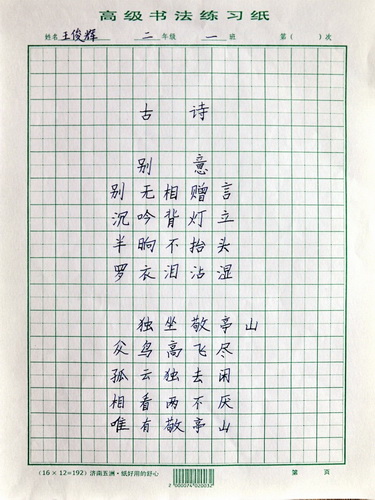 高级书法练习纸
姓名 王俊辉 二 年级 一 班 第( )次
古诗
别意
别无相赠言
沉吟背灯立
半晌不抬头
罗衣泪沾湿
独坐敬亭山
众鸟高飞尽
孤云独去闲
相看两不厌
唯有敬亭山
(16×12=192) 济南五洲·纸好用的舒心 第 页